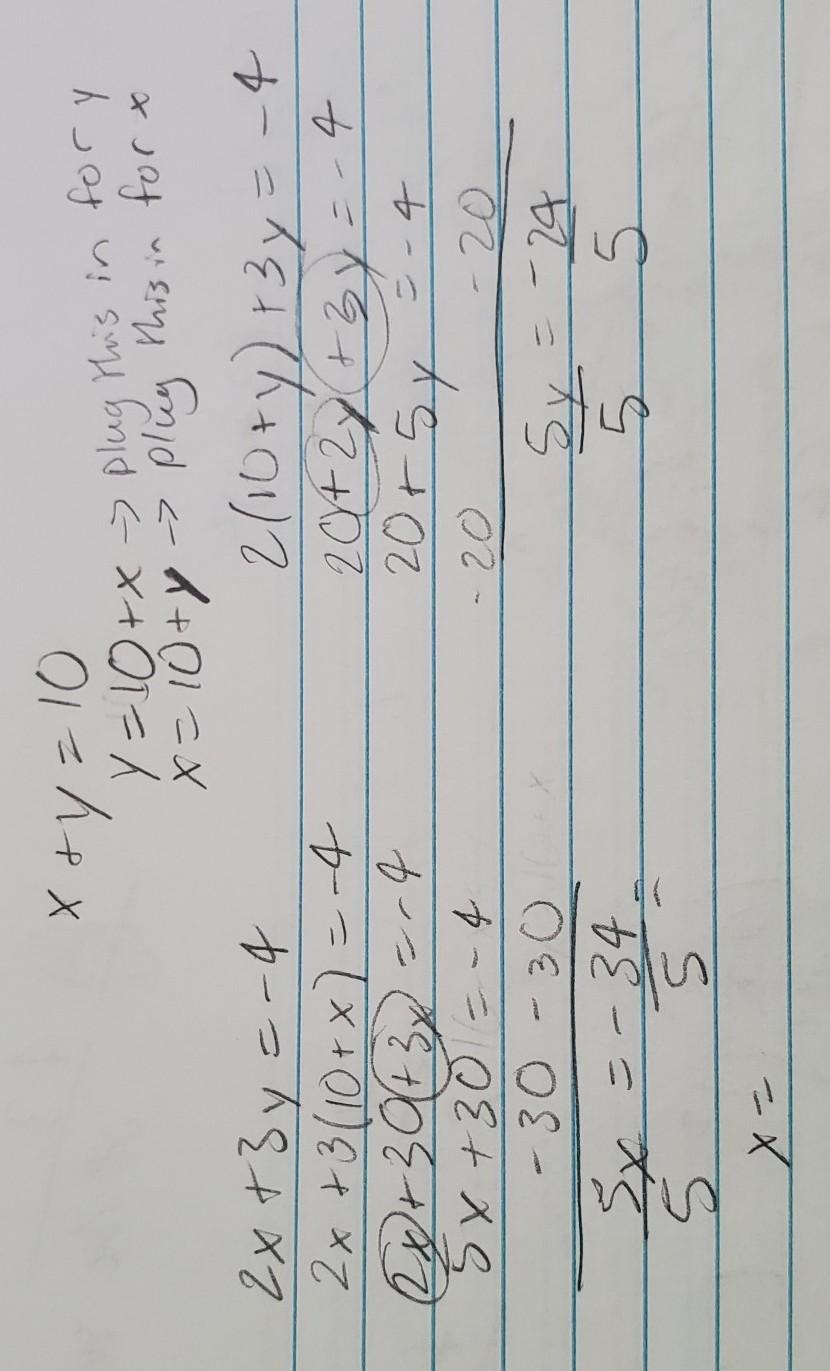 x + y = 10
y = 10 + x → plug this in for y
x = 10 + y → plug this in for x
2x + 3y = -4
2x + 3(10 + x) = -4
2x + 30 + 3x = -4
5x + 30 = -4
-30 -30
5x = -34
5 5
x =
2(10 + y) + 3y = -4
20 + 2y + 3y = -4
20 + 5y = -4
-20 -20
5y = -24
5 5